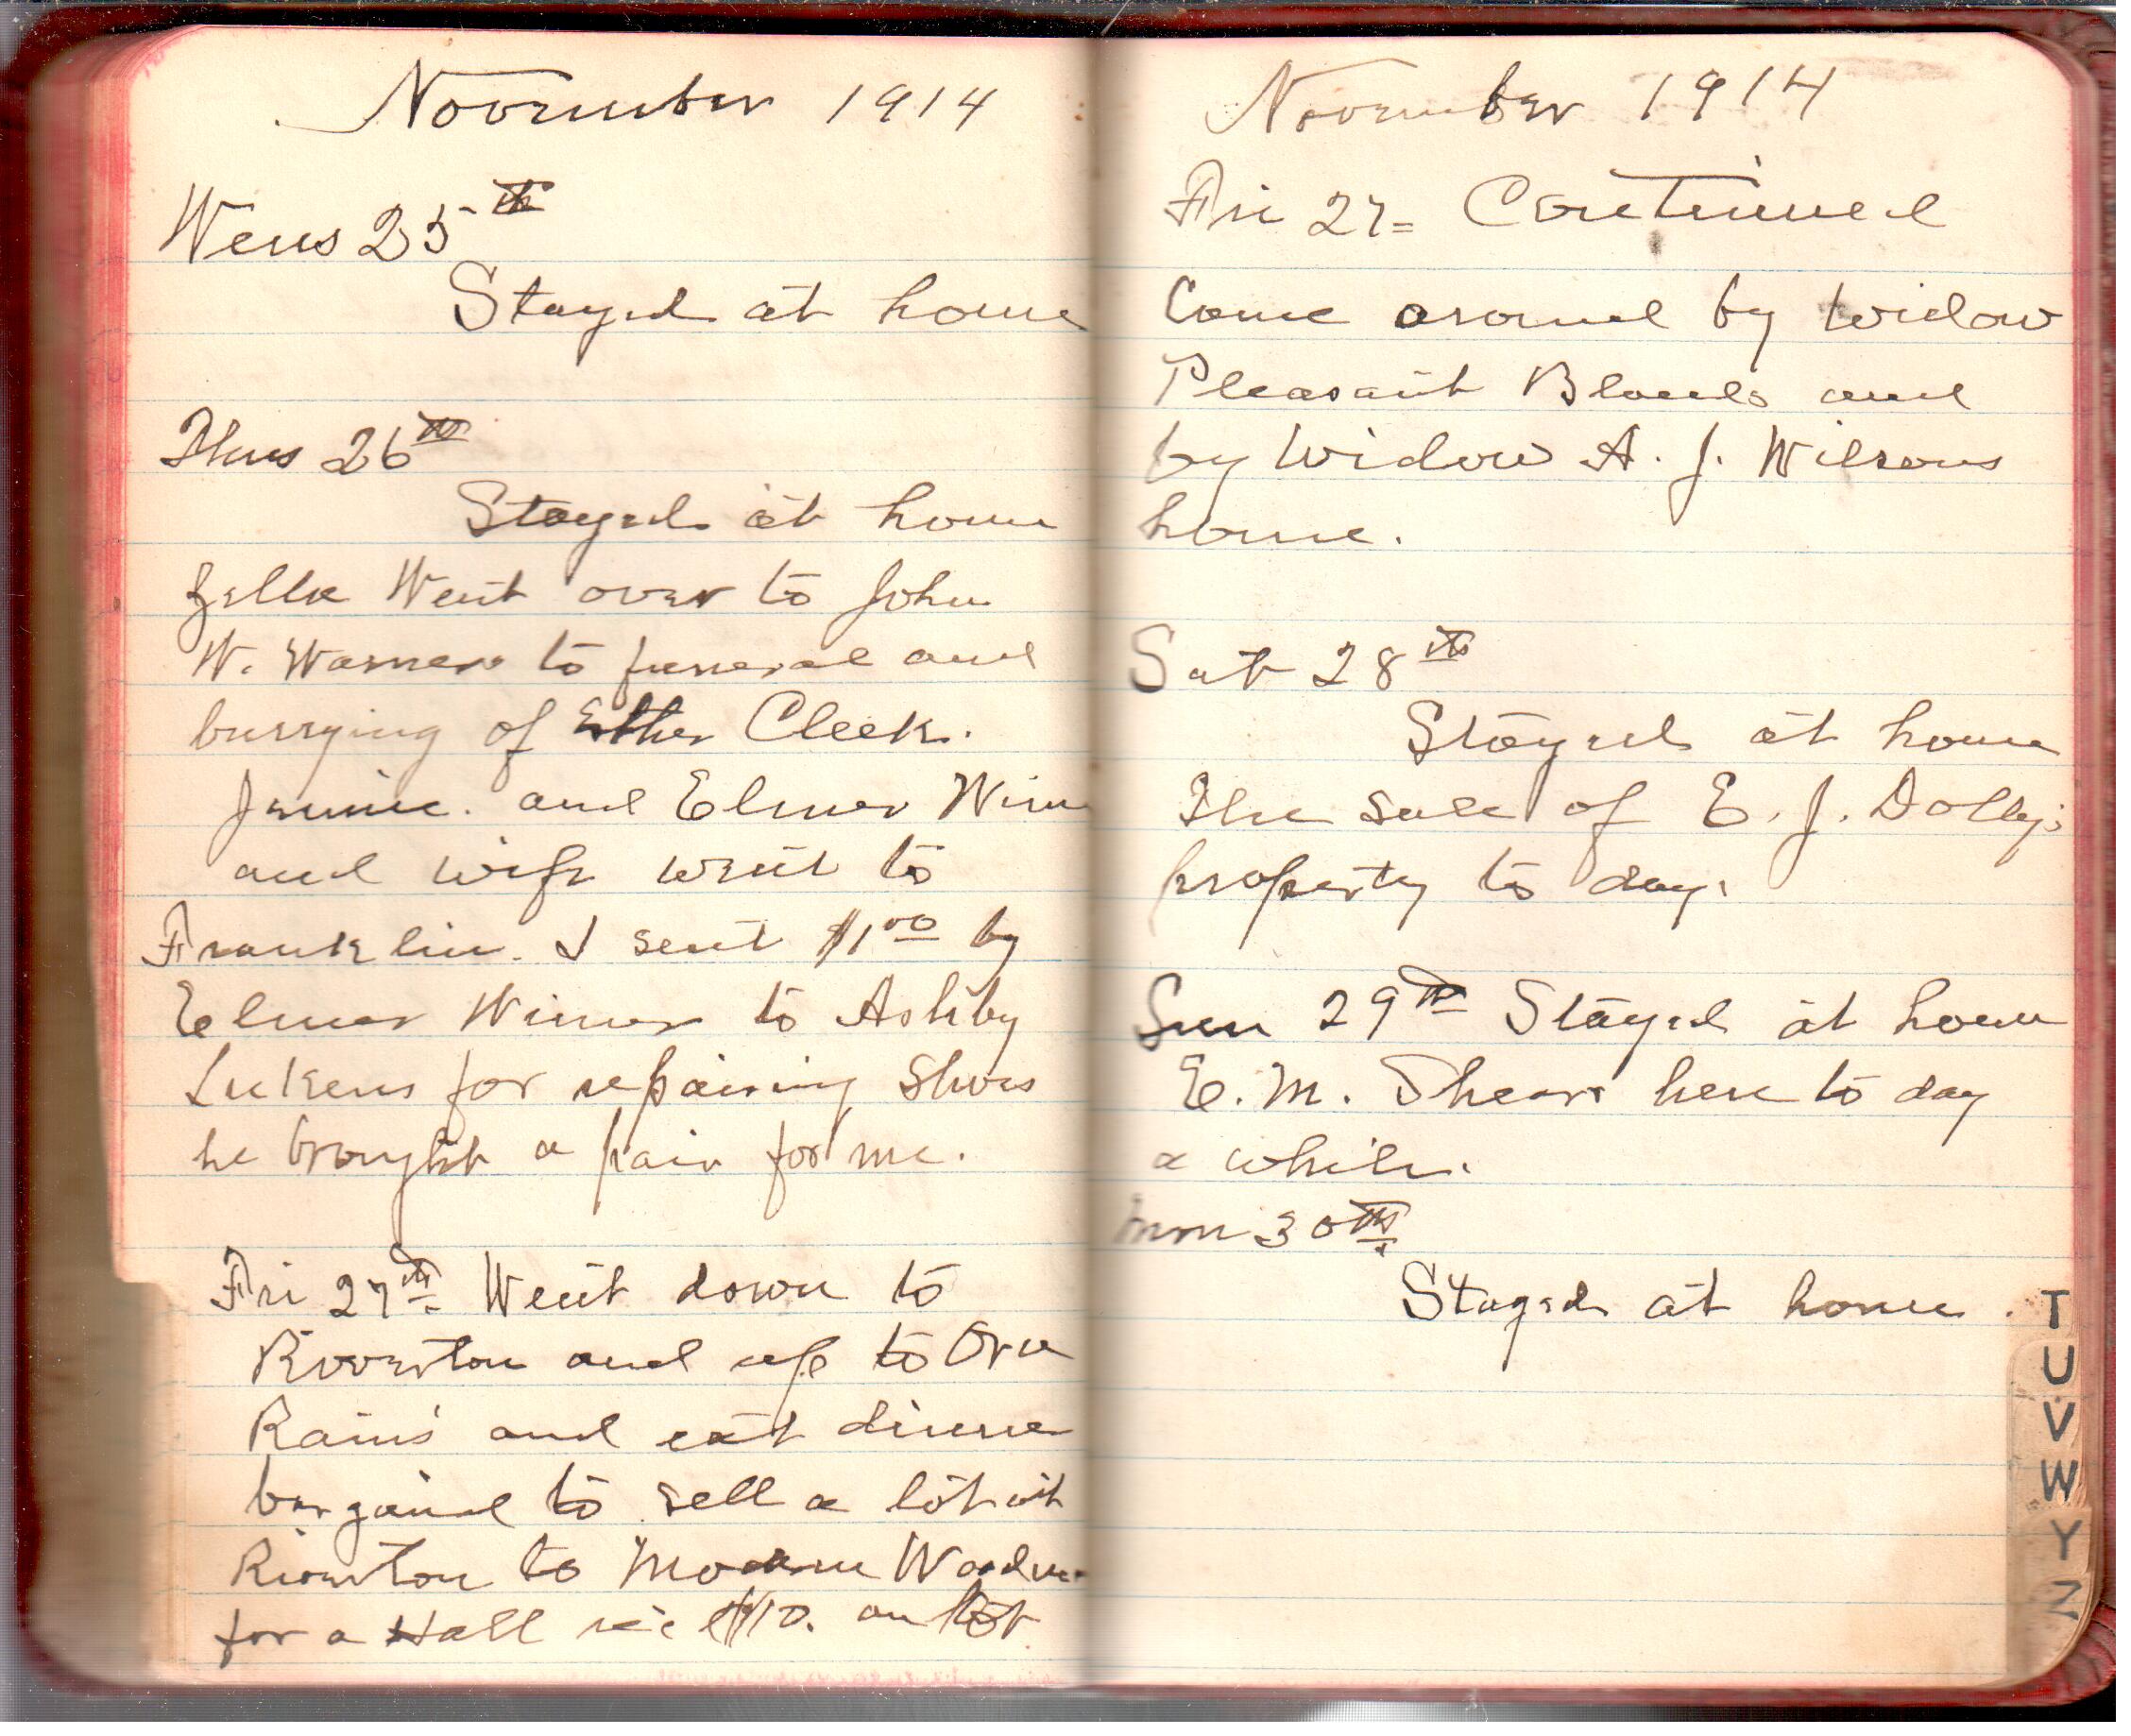 November 1914
Wens 25th
Stayed at home
Thus 26th
Stayed at home
Zella Went over to John
W. Warners to funeral and
burrying of Esther Cleek.
Jennie. and Elmer Wim
and wife went to
Franklin. I sent $1 00 by
Elmer Wimer to Ashby
Lukens for repairing Shoes
he brought a pair for me.
Fri 27th Went down to
Riverton and up to Ora
Rains and eat dinner
bargained to sell a lot at
Riverton to Modern Woodm
for a Hall rec $10. on lot
November 1914
Fri 27= Continued
Come around by Widow
Pleasant Blands and
by Widow A. J. Wilsons
home.
Sat 28th
Stayed at home
The Sale of E. J. Dollys
property to day.
Sun 29th Stayed at home
E. M. Shears here to day
a while.
Mon 30th
Stayed at home.
T
U
V
W
Y
Z